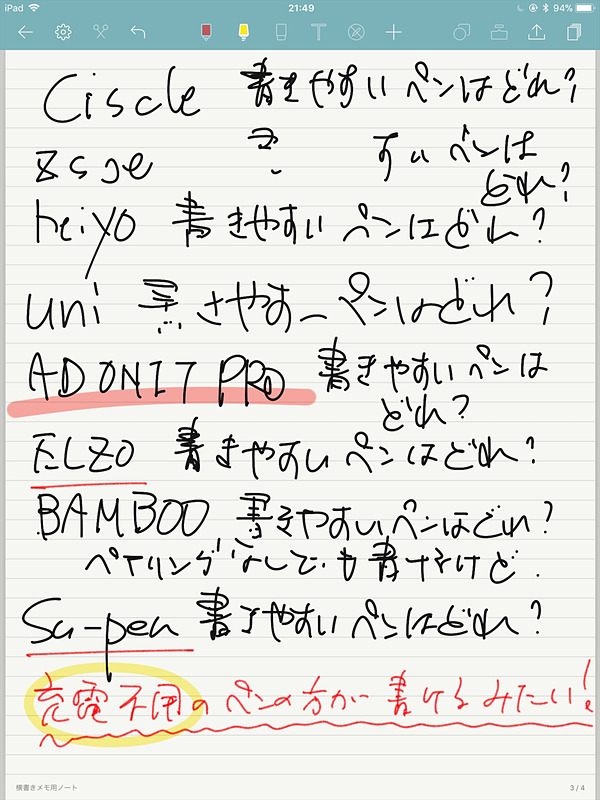 iPad 21:49 94%
Ciscle 書きやすいペンはどれ?
すいペンは
どれ?
heiyo 書きやすいペンはどれ?
uni 書きやすーペンはどれ?
ADONIT PRO 書きやすいペンは
どれ?
ELZO 書きやすいペンはどれ?
BAMBOO 書きやすいペンはどれ?
ペアリングなしでも書けるけど.
Su-pen 書きやすいペンはどれ?
充電不用のペンの方が書けるみたい!
横書きメモ用ノート 3 / 4